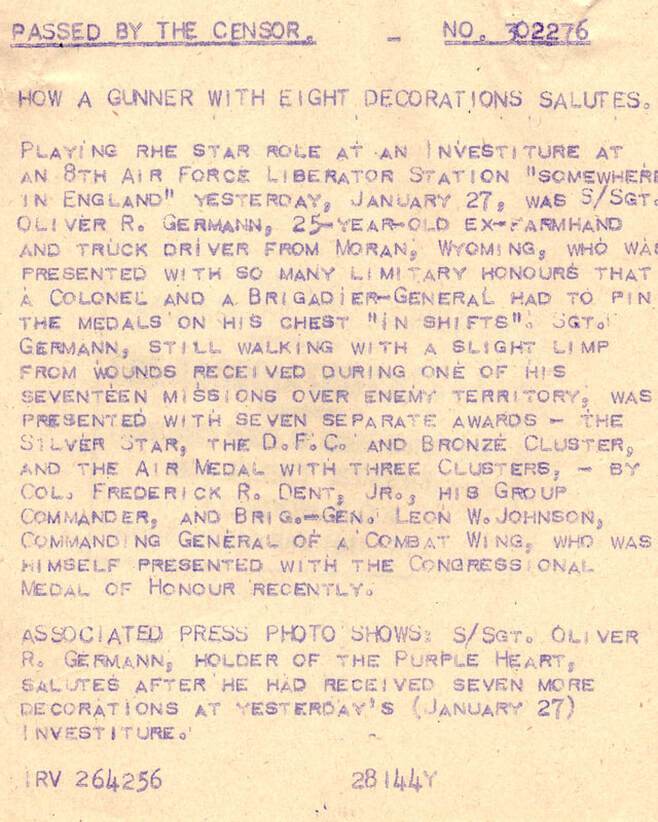 PASSED BY THE CENSOR. - NO. 302276
HOW A GUNNER WITH EIGHT DECORATIONS SALUTES.
PLAYING RHE STAR ROLE AT AN INVESTITURE AT
AN 8TH AIR FORCE LIBERATOR STATION "SOMEWHERE
IN ENGLAND" YESTERDAY, JANUARY 27, WAS S/SGT.
OLIVER R. GERMANN, 25-YEAR-OLD EX-FARMHAND
AND TRUCK DRIVER FROM MORAN, WYOMING, WHO WAS
PRESENTED WITH SO MANY LIMITARY HONOURS THAT
A COLONEL AND A BRIGADIER-GENERAL HAD TO PIN
THE MEDALS ON HIS CHEST "IN SHIFTS". SGT.
GERMANN, STILL WALKING WITH A SLIGHT LIMP
FROM WOUNDS RECEIVED DURING ONE OF HIS
SEVENTEEN MISSIONS OVER ENEMY TERRITORY, WAS
PRESENTED WITH SEVEN SEPARATE AWARDS - THE
SILVER STAR, THE D.F.C. AND BRONZE CLUSTER,
AND THE AIR MEDAL WITH THREE CLUSTERS, - BY
COL. FREDERICK R. DENT, JR., HIS GROUP
COMMANDER, AND BRIG.-GEN. LEON W. JOHNSON,
COMMANDING GENERAL OF A COMBAT WING, WHO WAS
HIMSELF PRESENTED WITH THE CONGRESSIONAL
MEDAL OF HONOUR RECENTLY.
ASSOCIATED PRESS PHOTO SHOWS: S/SGT. OLIVER
R. GERMANN, HOLDER OF THE PURPLE HEART,
SALUTES AFTER HE HAD RECEIVED SEVEN MORE
DECORATIONS AT YESTERDAY'S (JANUARY 27)
INVESTITURE.
IRV 264256 28144Y